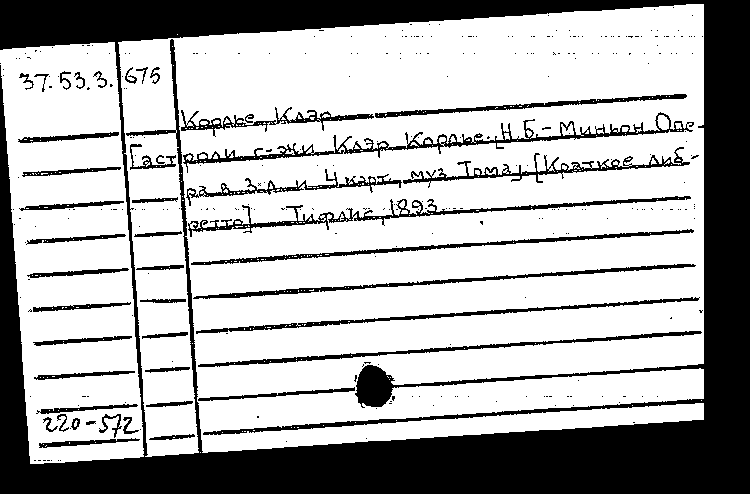 37.53.3. 675
Кордье, Клэр
Гастроли г-жи Клэр Кордье. [Н.Б. - Миньон Опе-
ра в 3 д. и 4 карт., муз Тома]. [Краткое либ-
ретто] Тифлис, 1893.
220-572